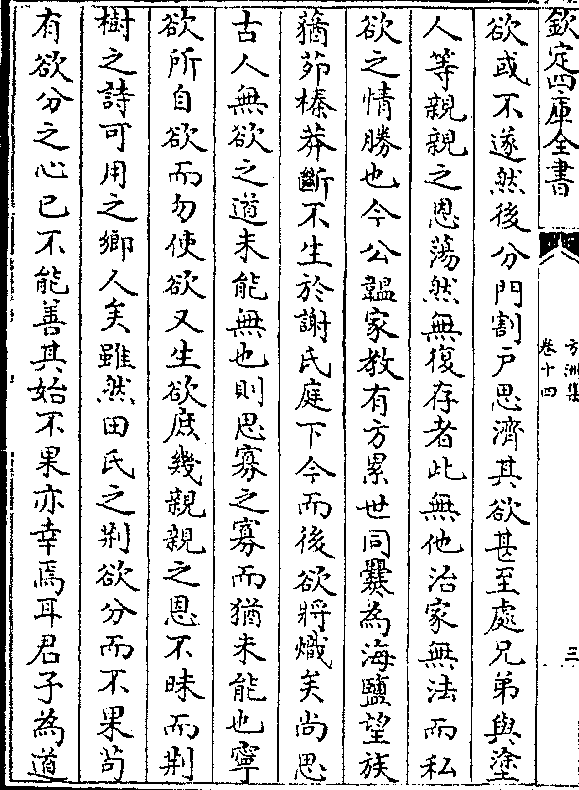 欽定四庫全書
方洲集
卷十四
三
欲或不遂然後分門割戸思濟其欲甚至處兄弟與塗
人等親親之恩蕩然無復存者此無他治家無法而私
欲之情勝也今公韞家教有方累世同爨為海鹽望族
猶茆榛莽斷不生於謝氏庭下今而後欲將熾矣尚思
古人無欲之道未能無也則思寡之寡而猶未能也寧
欲所自欲而勿使欲又生欲庶幾親親之恩不昧而荆
樹之詩可用之鄉人矣雖然田氏之荆欲分而不果茍
有欲分之心已不能善其始不果亦幸焉耳君子為道